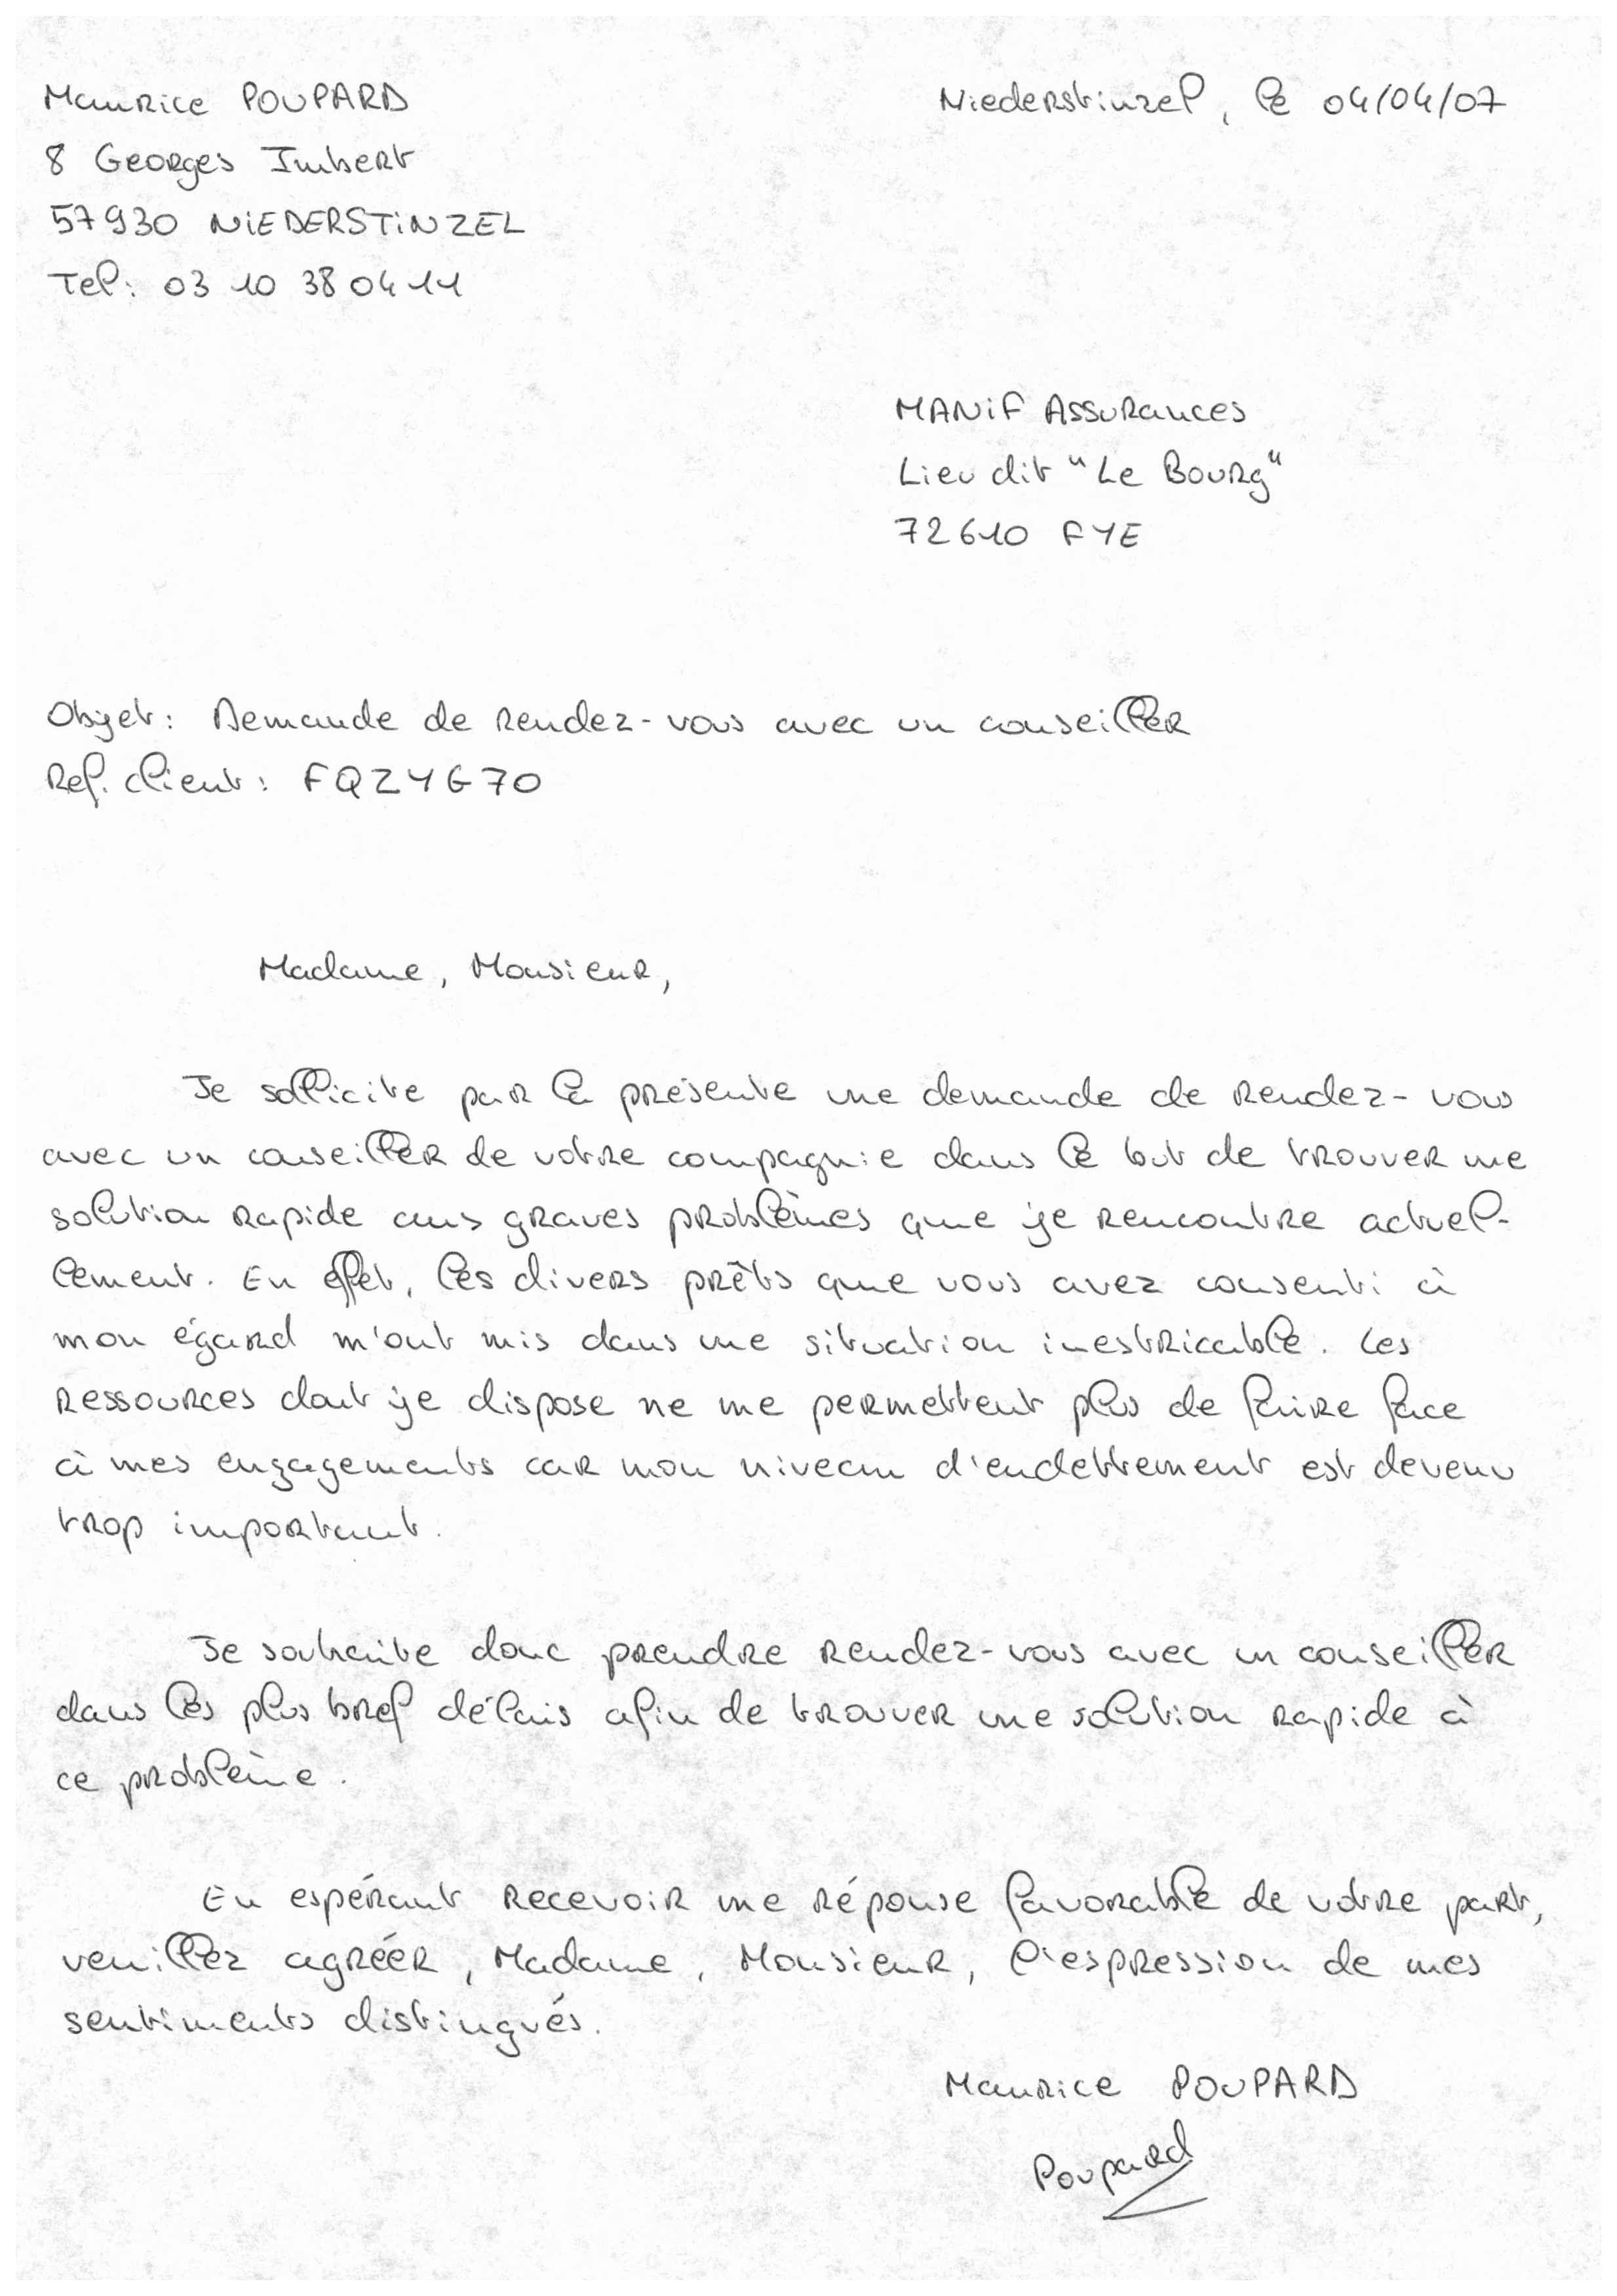 Maurice POUPARD
Niederstinzel, le 04/04/07
8 Georges Imbert
57930 NIEDERSTINZEL
Tel: 03 10 38 04 11
MANIF Assurances
Lieu dit "Le Bourg"
72610 FYE
Objet: Demande de rendez-vous avec un conseiller
Ref. client: FQZYG70
Madame, Monsieur,
Je sollicite par la présente une demande de rendez-vous
avec un conseiller de votre compagnie dans le but de trouver une
solution rapide aux graves problèmes que je rencontre actuel-
lement. En effet, les divers prêts que vous avez consenti à
mon égard m'ont mis dans une situation inextricable. Les
ressources dont je dispose ne me permettent plus de faire face
à mes engagements car mon niveau d'endettement est devenu
trop important.
Je souhaite donc prendre rendez-vous avec un conseiller
dans les plus bref délais afin de trouver une solution rapide à
ce problème.
En espérant recevoir une réponse favorable de votre part,
veuillez agréer, Madame, Monsieur, l'expression de mes
sentiments distingués.
Maurice POUPARD
Poupard